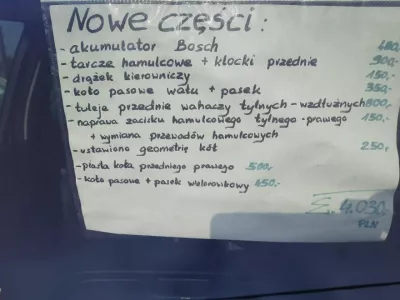 Nowe części:
- akumulator Bosch 480,-
- tarcze hamulcowe + klocki przednie 900,-
- drążek kierowniczy 150,-
- koło pasowe wału + pasek 350,-
- tuleje przednie wahaczy tylnych - wzdłużnych 800,-
- naprawa zacisku hamulcowego tylnego - prawego 150,-
+ wymiana przewodów hamulcowych
- ustawiono geometrię kół 250,-
- piasta koła przedniego prawego 500,-
- koło pasowe + pasek wielorowkowy 450,-
Σ 4.030,-
PLN